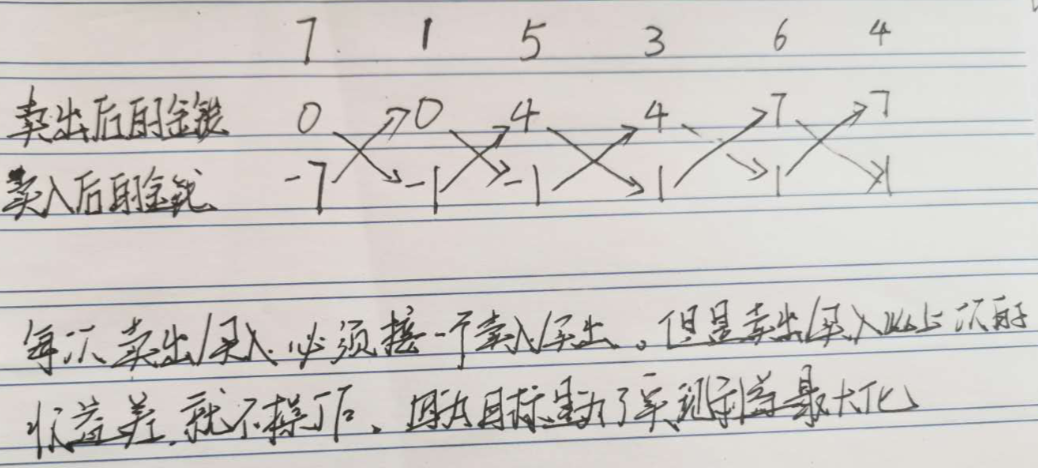 7 1 5 3 6 4
卖出后的金钱 0 0 4 4 7 7
买入后的金钱 -7 -1 -1 1 1 1
每次卖出/买入必须接一个买入/卖出。但是卖出/买入比上次的
收益差,就不操作、因为目标是为了实现利益最大化